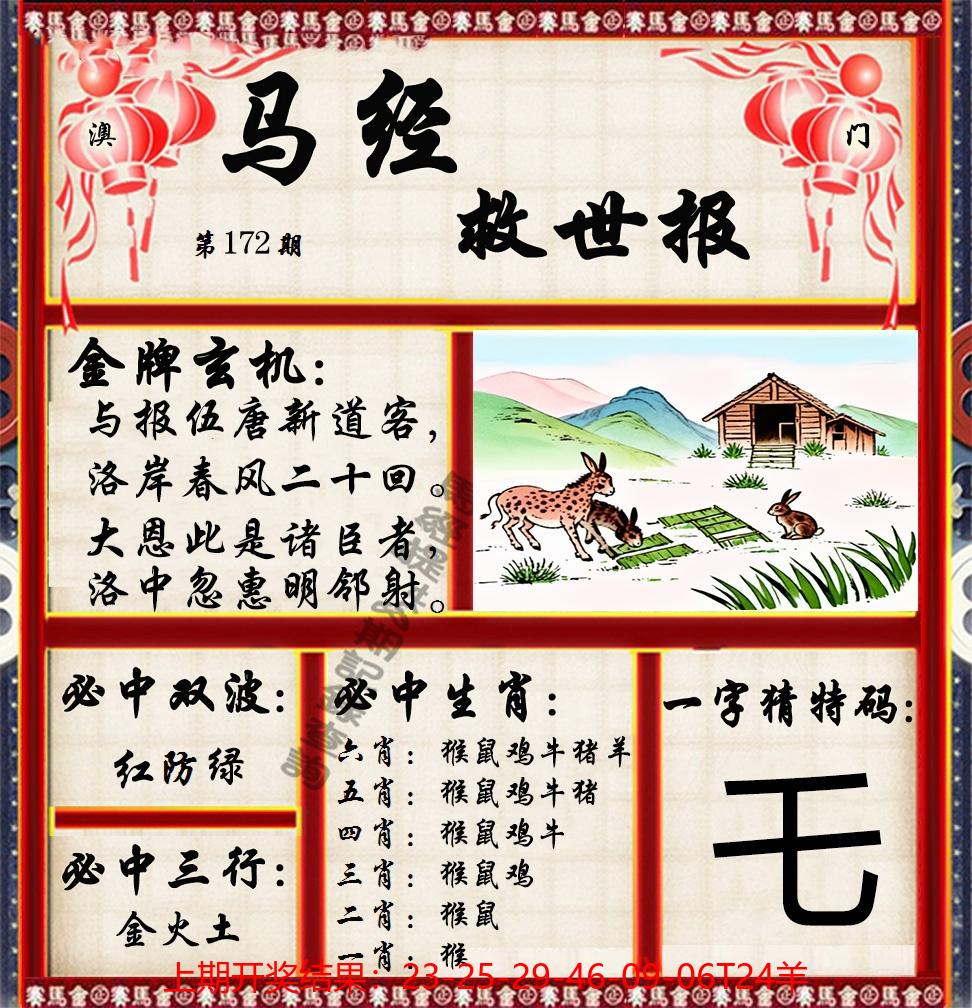 澳
门
马经
救世报
第172期
金牌玄机：
与报伍唐新道客，
洛岸春风二十回。
大恩此是诸臣者，
洛中忽惠明邻射。
必中双波：
红防绿
必中三行：
金火土
必中生肖：
六肖：猴鼠鸡牛猪羊
五肖：猴鼠鸡牛猪
四肖：猴鼠鸡牛
三肖：猴鼠鸡
二肖：猴鼠
一肖：猴
一字猜特码：
上期开奖结果：23-25-29-46-09-06T24羊